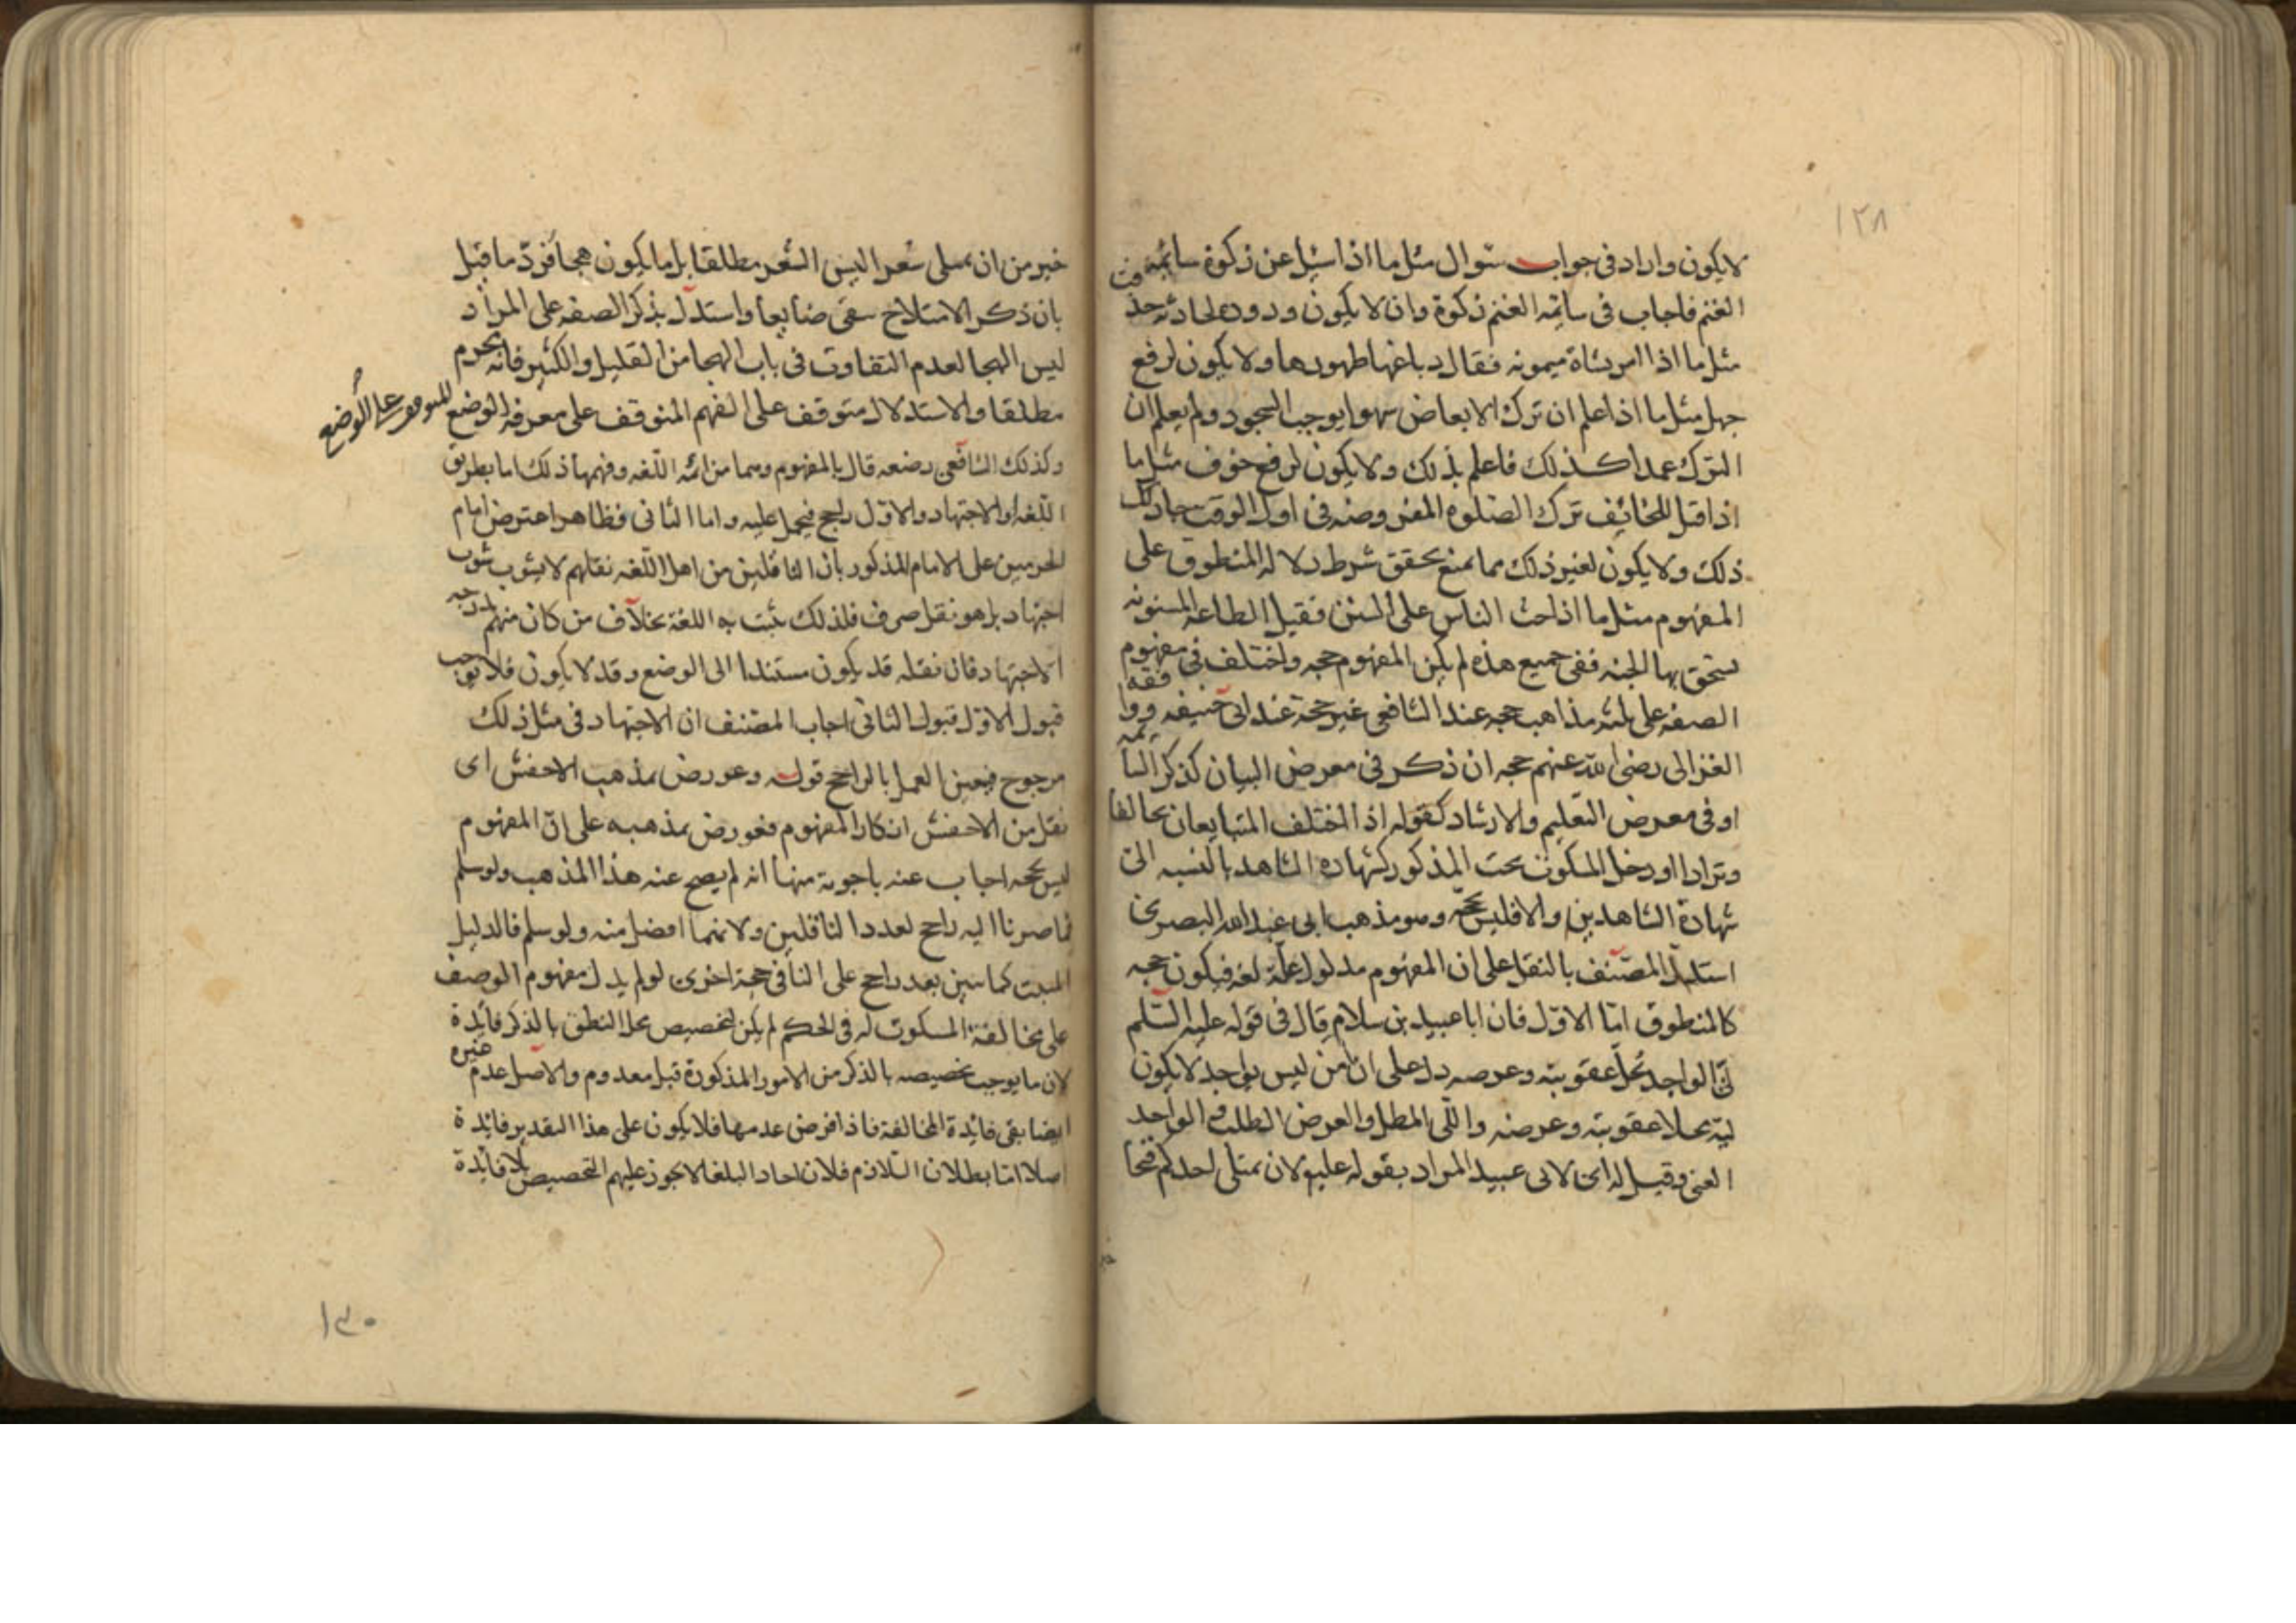 ١٢٨
لا يكون واراد فى جواب سؤال مثل ما اذا سئل عن زكوة سائمة
الغنم فاجاب فى سائمة الغنم زكوة وان لا يكون ورود لحادثه حذفت
مثل ما اذا امر بشاة ميمونه فقال دباغها طهورها ولا يكون لرفع
جهل مثل ما اذا علم ان ترك الابعاض سهوا يوجب السجود ولم يعلم ان
الترك عمدا كذلك فاعلم بذلك ولا يكون لرفع خوف مثل ما
اذا قيل للخائف ترك الصلوة المفروضه فى اول الوقت جاز لك
ذلك ولا يكون لغير ذلك مما يمنع تحقق شرط دلالة المنطوق على
المفهوم مثل ما اذا حث الناس على السنن فقيل الطاعة المسنونه
يستحق بها الجنه ففى جميع هذه لم يكن المفهوم حجه واختلف فى مفهوم
الصفه على ثلثه مذاهب حجه عند الشافعى غير حجة عند ابى حنيفه ووافقه
الغزالى رضى الله عنهم حجه ان ذكر فى معرض البيان كذكر السائمه
او فى معرض التعليم والارشاد كقوله اذا اختلف المتبايعان تحالفا
وترادا او دخل المسكوت تحت المذكور كشهادة الشاهد بالنسبه الى
شهادة الشاهدين والا فليس بحجة وهو مذهب ابى عبد الله البصرى
استدل المصنف بالنقل على ان المفهوم مدلول عليه لغه فيكون حجه
كالمنطوق امّا الاوّل فان ابا عبيد بن سلام قال فى قوله عليه السّلم
لىّ الواجد يحلّ عقوبته وعرضه دل على ان من ليس بواجد لا يكون
ليّه محلا عقوبته وعرضه واللّى المطل والعرض الطلب والواجد
الغنى وقيل له اى لابى عبيد المراد بقوله عليه لان يمتلى احدكم قيحا
خير من ان يمتلى شعرا ليس الشعر مطلقا بل ما يكون هجا فردّ ما قيل
بان ذكر الامتلاح بقى ضايعا واستدل بذكر الصفه على المراد
ليس الهجا لعدم التفاوت فى باب الهجا من القليل والكثير فانه يحرم
مطلقا والاستدلال متوقف على الفهم المتوقف على معرفة الوضع المتوقف على الوضع
وكذلك الشافعى رضعه قال بالمفهوم وهما من ائمه اللّغه وفهمها ذلك اما بطريق
اللّغه او الاجتهاد والاوّل راجح فيحمل عليه واما الثانى فظاهر اعترض امام
الحرمين على الامام المذكور بان الناقلين من اهل اللّغه نقلهم لا يشوب شوب
اجتهاد بل هو نقل صرف فلذلك يثبت به اللغة بخلاف من كان منهم له درجه
الاجتهاد فان نقله قد يكون مستندا الى الوضع وقد لا يكون فلا يوجب
قبول الاوّل قبول الثانى اجاب المصنف ان الاجتهاد فى مثل ذلك
مرجوح فيعين العمل بالراجح قوله وعورض بمذهب الاخفش اى
نقل من الاخفش انكار المفهوم فعورض بمذهبه على انّ المفهوم
ليس بحجه اجاب عنه باجوبة منها انه لم يصح عنه هذا المذهب ولو سلم
فما صرنا اليه راجح لعدد الناقلين ولانهما افضل منه ولو سلم فالدليل
المثبت كما سيئ بعد راجح على النافى حجة اخرى لو لم يدل مفهوم الوصف
على مخالفة المسكوت له فى الحكم لم يكن لتخصيص محل النطق بالذكر فائدة
لان ما يوجب تخصيصه بالذكر من الامور المذكورة قبل معدوم والاصل عدم غيره
ايضا بقى فائدة المخالفة فاذا فرض عدمها فلا يكون على هذا التقدير فائدة
اصلا امّا بطلان التلازم فلان احاد البلغا لا يجوز عليهم التخصيص بلا فائدة
١٣٠